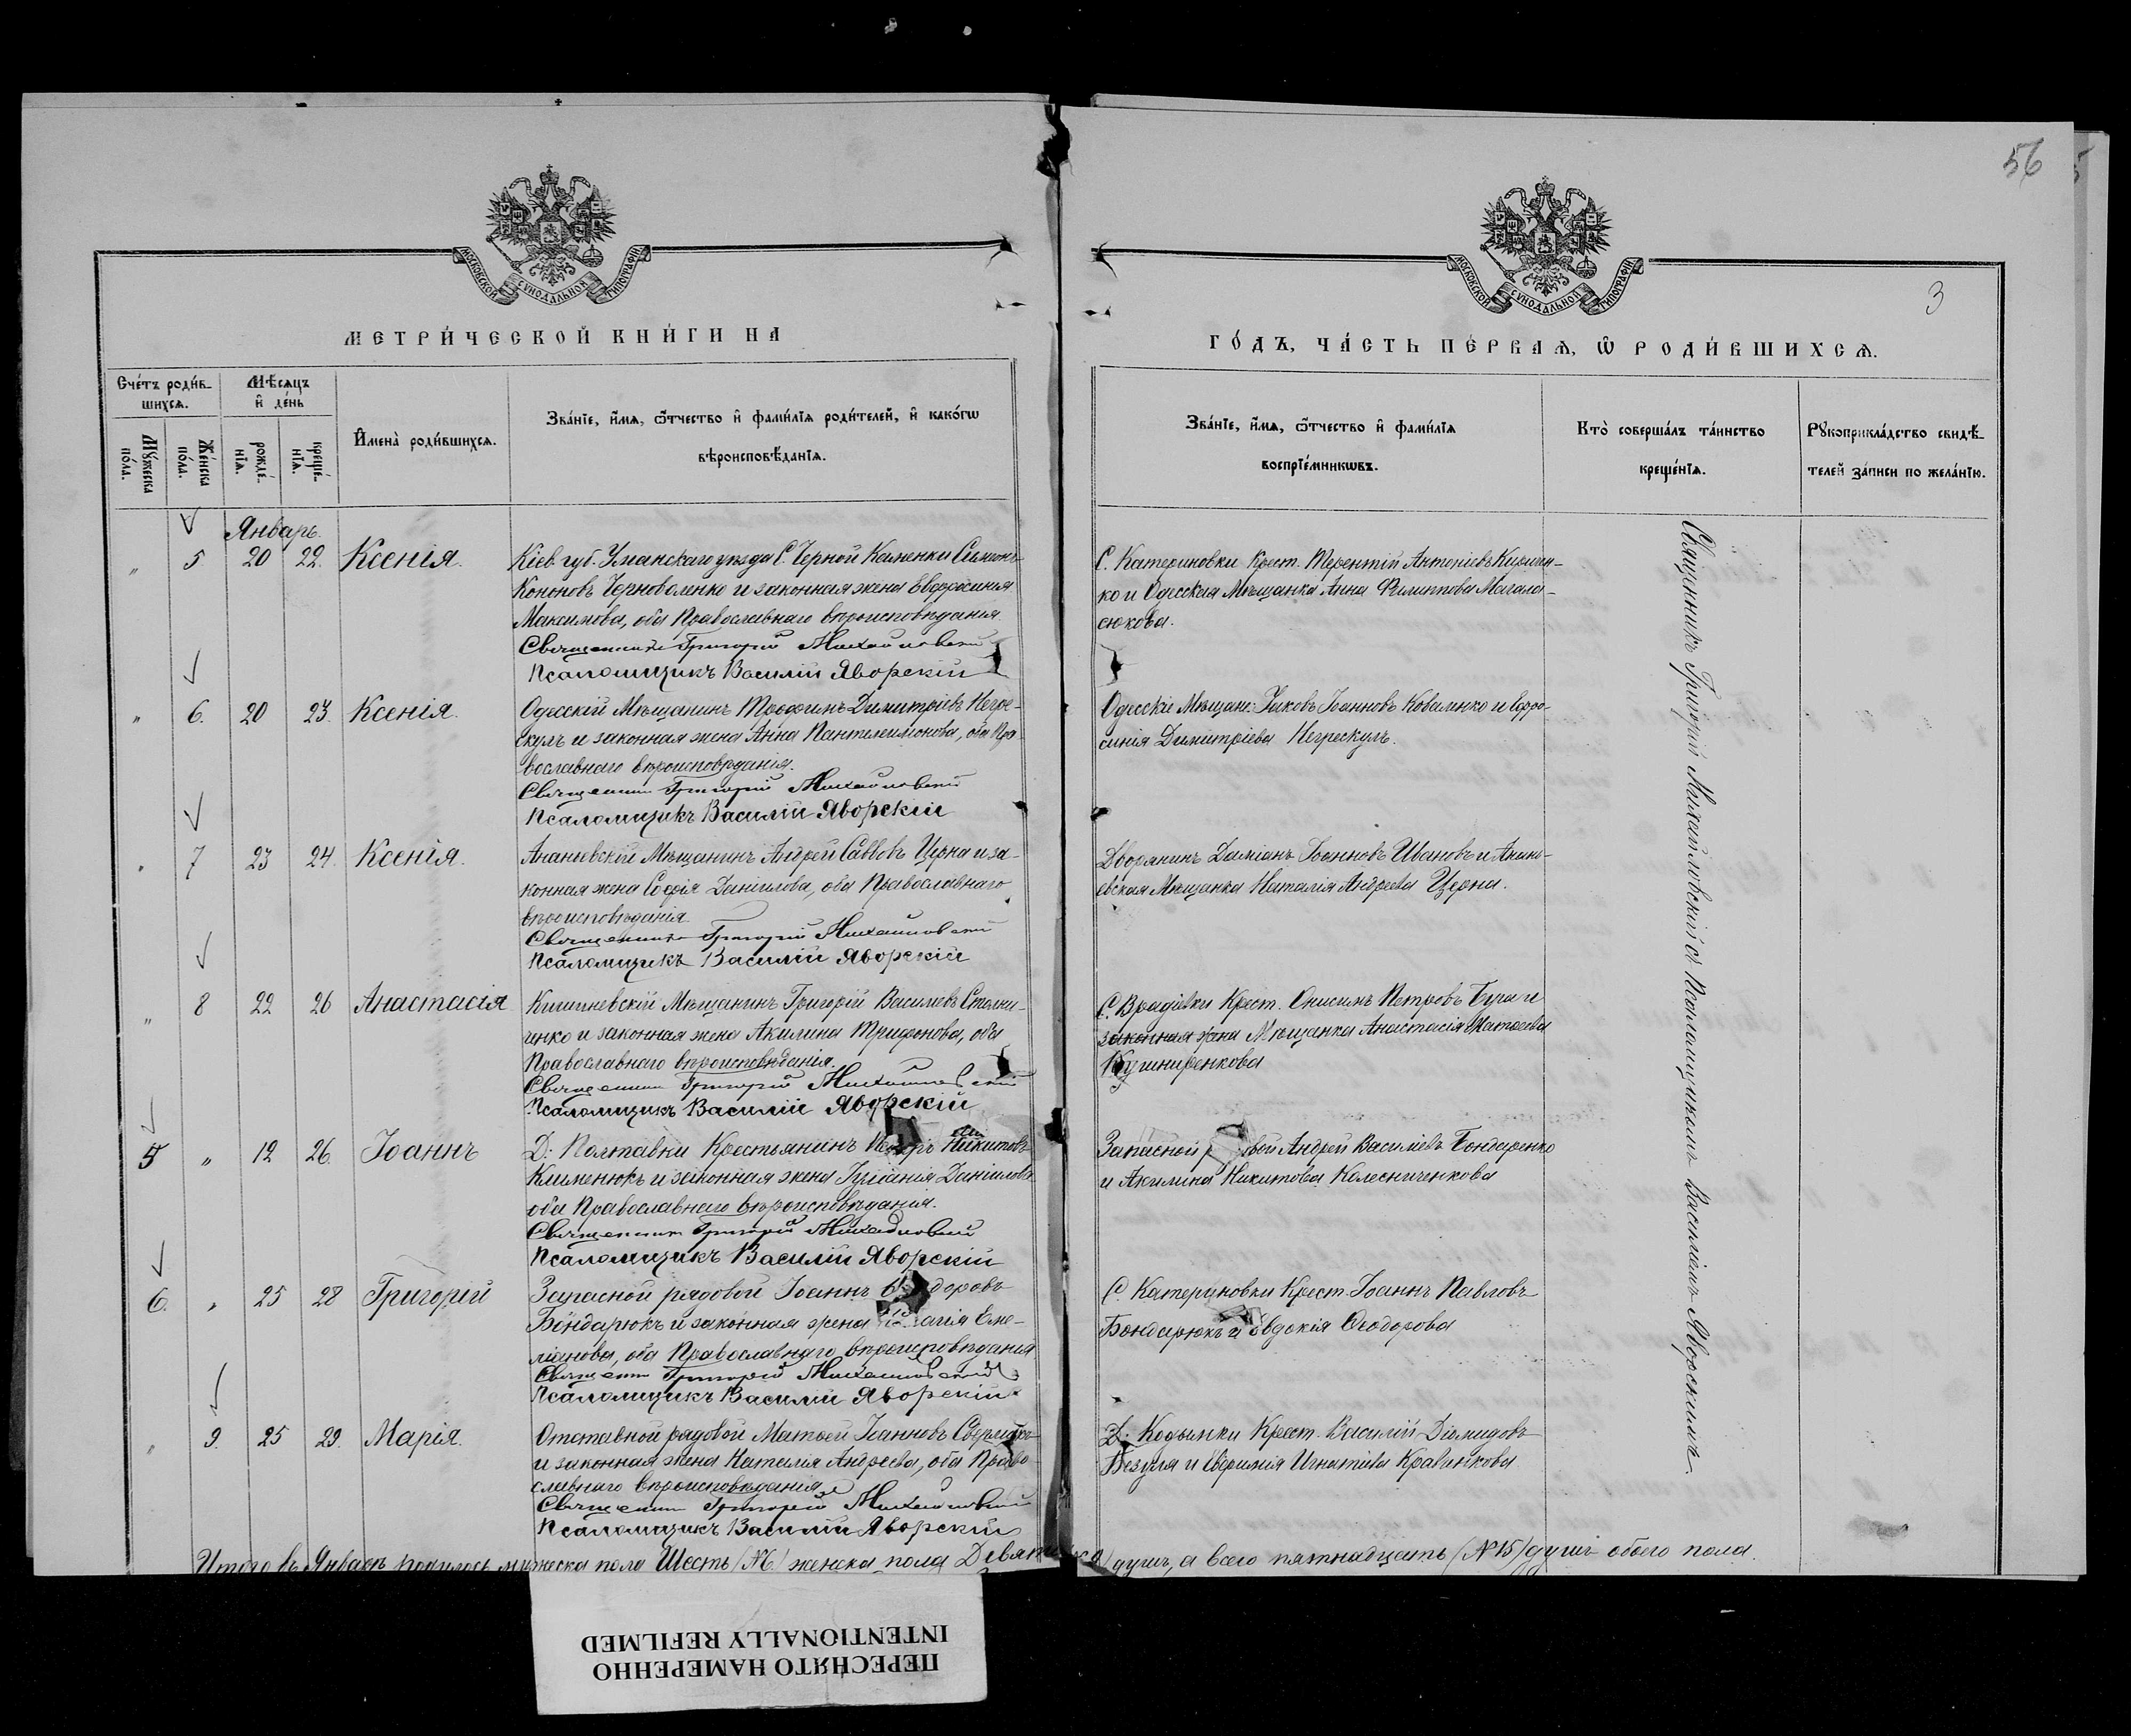 56
МОСКОВСКОЙ СУНОДАЛЬНОЙ ТИПОГРАФІИ
МОСКОВСКОЙ СУНОДАЛЬНОЙ ТИПОГРАФІИ
3
МЕТРИ́ЧЕСКОЙ КНИ́ГИ НА
ГО́ДЪ, ЧА́СТЬ ПЕ́РВАѦ, Ѡ РОДИ́ВШИХСѦ.
Сче́тъ роди́в-
шихсѧ.
Мѹ́жеска по́ла.
Же́нска по́ла.
Мѣ́сѧцъ
и҆ де́нь
рожде́-
нїѧ.
креще́-
нїѧ.
И҆мена̀ роди́вшихсѧ.
Зва́нїе, и҆́мѧ, ѻ҆́тчество и҆ фами́лїѧ роди́телей, и҆ како́гѡ
вѣроисповѣ́данїѧ.
Зва́нїе, и҆́мѧ, ѻ҆́тчество и҆ фами́лїѧ
воспрїе́мникѡвъ.
Кто̀ соверша́лъ та́инство
креще́нїѧ.
Рꙋкоприкла́дство свидѣ́-
телей за́писи по жела́нїю.
Январь.
" 5 20 22. Ксенія.
Кіев. губ. Уманскаго уѣзда С. Черной Каменки Симонъ
Кононовъ Черноволенко и законная жена Евфросинія
Максимова, оба Православнаго вѣроисповѣданія.
Священникъ Григорій Михайловскій
Псаломщикъ Василій Яворскій
С. Катериновки Крест. Терентій Антоніевъ
ко и Одесская Мѣщанка Анна Филиппова
сюкова.
" 6. 20 23. Ксенія.
Одесскій Мѣщанинъ Трофимъ Димитріевъ Негре-
скулъ и законная жена Анна Пантелеимонова, оба Пра
вославнаго вѣроисповѣданія.
Священникъ Григорій Михайловскій
Псаломщикъ Василій Яворскій
Одесскіе Мѣщане: Іаковъ Іоанновъ Коваленко и Евфро-
синія Димитріева Негрескулъ.
" 7 23 24. Ксенія.
Ананьевскій Мѣщанинъ Андрей Саввовъ Церна и за-
конная жена Софія Даніилова, оба Православнаго
вѣроисповѣданія
Священникъ Григорій Михайловскій
Псаломщикъ Василій Яворскій
Дворянинъ Даміанъ Іоанновъ Ивановъ и Анань-
евская Мѣщанка Наталія Андреева Церна.
" 8 22 26 Анастасія
Кишиневскій Мѣщанинъ Григорій Василіевъ
енко и законная жена Акилина Трифонова, оба
Православнаго вѣроисповѣданія.
Священникъ Григорій Михайловскій
Псаломщикъ Василій Яворскій
С. Врадіевки Крест. Онисимъ Петровъ Буга и
законная жена Мѣщанка Анастасія Матѳеева
Кушниренкова
5 " 12 26. Іоаннъ
Д. Полтавки Крестьянинъ Никитовъ
Клименюкъ и законная жена Іуліанія Даніилова
оба Православнаго вѣроисповѣданія.
Священникъ Григорій Михайловскій
Псаломщикъ Василій Яворскій
Запасной Андрей Василіевъ Бондаренко
и Акилина Никитова Колесниченкова
6. " 25 28 Григорій
Запасной рядовой Іоаннъ
Бондарюкъ и законная жена Еме-
ліанова, оба Православнаго вѣроисповѣданія
Священникъ Григорій Михайловскій
Псаломщикъ Василій Яворскій
С. Катериновки Крест. Іоаннъ Павловъ
Бондарюкъ и Евдокія Ѳеодорова
" 9. 25 29. Марія.
Отставной рядовой Матѳей Іоанновъ
и законная жена Наталія Андреева, оба Право
славнаго вѣроисповѣданія
Священникъ Григорій Михайловскій
Псаломщикъ Василій Яворскій
Д. Кодымки Крест. Василій Діомидовъ
Безуля и Евфимія Игнатіева
Священникъ Григорій Михайловскій съ Псаломщикомъ Василіемъ Яворскимъ.
Итого въ Январѣ родилось мужеска пола Шесть (№6) женска пола душъ, а всего пятнадцать (№15) душъ обоего пола.
ПЕРЕСНЯТО НАМЕРЕННО
INTENTIONALLY REFILMED